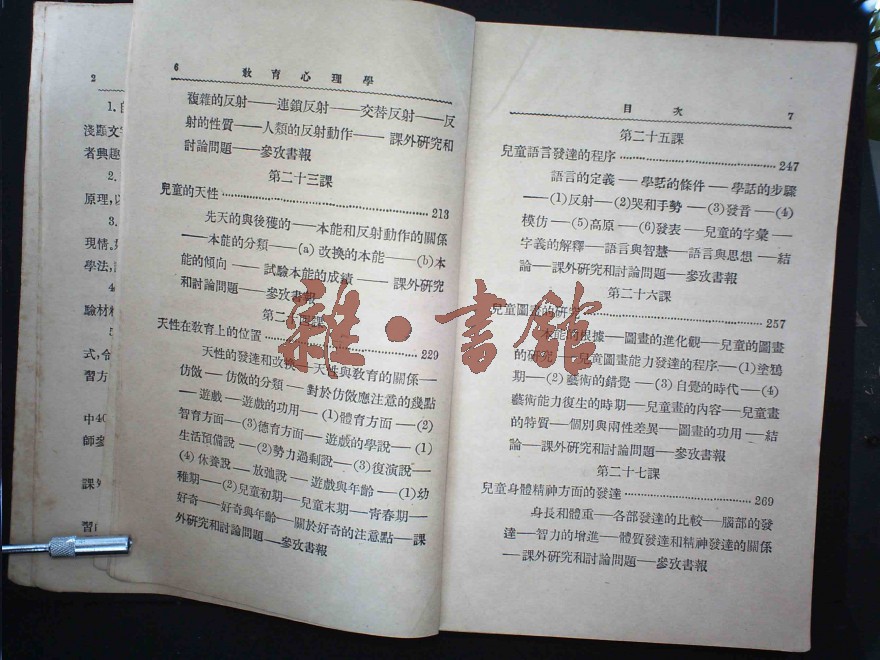 2
1.
淺顯文
者興趣
2.
原理,
3.
現情,
學法,
4
驗材
5
式,令
習方
中40
師
課
習
6 敎育心理學
複雜的反射——連鎖反射——交替反射——反
射的性質——人類的反射動作——課外研究和
討論問題——參攷書報
第二十三課
兒童的天性 213
先天的與後獲的——本能和反射動作的關係
——本能的分類——(a)改換的本能——(b)本
能的傾向——試驗本能的成績——課外研究
和討論問題——參攷書報
第二十四課
天性在敎育上的位置 229
天性的發達和改換——天性與敎育的關係——
仿傚——仿傚的分類——對於仿傚應注意的幾點
——遊戲——遊戲的功用——(1)體育方面——(2)
智育方面——(3)德育方面——遊戲的學說——(1)
生活預備說——(2)勢力過剩說——(3)復演說——
(4)休養說——放弛說——遊戲與年齡——(1)幼
稚期——(2)兒童初期——兒童末期——靑春期——
好奇——好奇與年齡——關於好奇的注意點——課
外研究和討論問題——參攷書報
目次 7
第二十五課
兒童語言發達的程序 247
語言的定義——學話的條件——學話的步驟
——(1)反射——(2)哭和手勢——(3)發音——(4)
模仿——(5)高原——(6)發表——兒童的字彙——
字義的解釋——語言與智慧——語言與思想——結
論——課外研究和討論問題——參攷書報
第二十六課
兒童圖畫的研究 257
本能的根據——圖畫的進化觀——兒童的圖畫
的研究——兒童圖畫能力發達的程序——(1)塗鴉
期——(2)藝術的錯覺——(3)自覺的時代——(4)
藝術能力復生的時期——兒童畫的內容——兒童畫
的特質——個別與兩性差異——圖畫的功用——結
論——課外研究和討論問題——參攷書報
第二十七課
兒童身體精神方面的發達 269
身長和體重——各部發達的比較——腦部的發
達——智力的增進——體質發達和精神發達的關係
——課外研究和討論問題——參攷書報
雜·書館